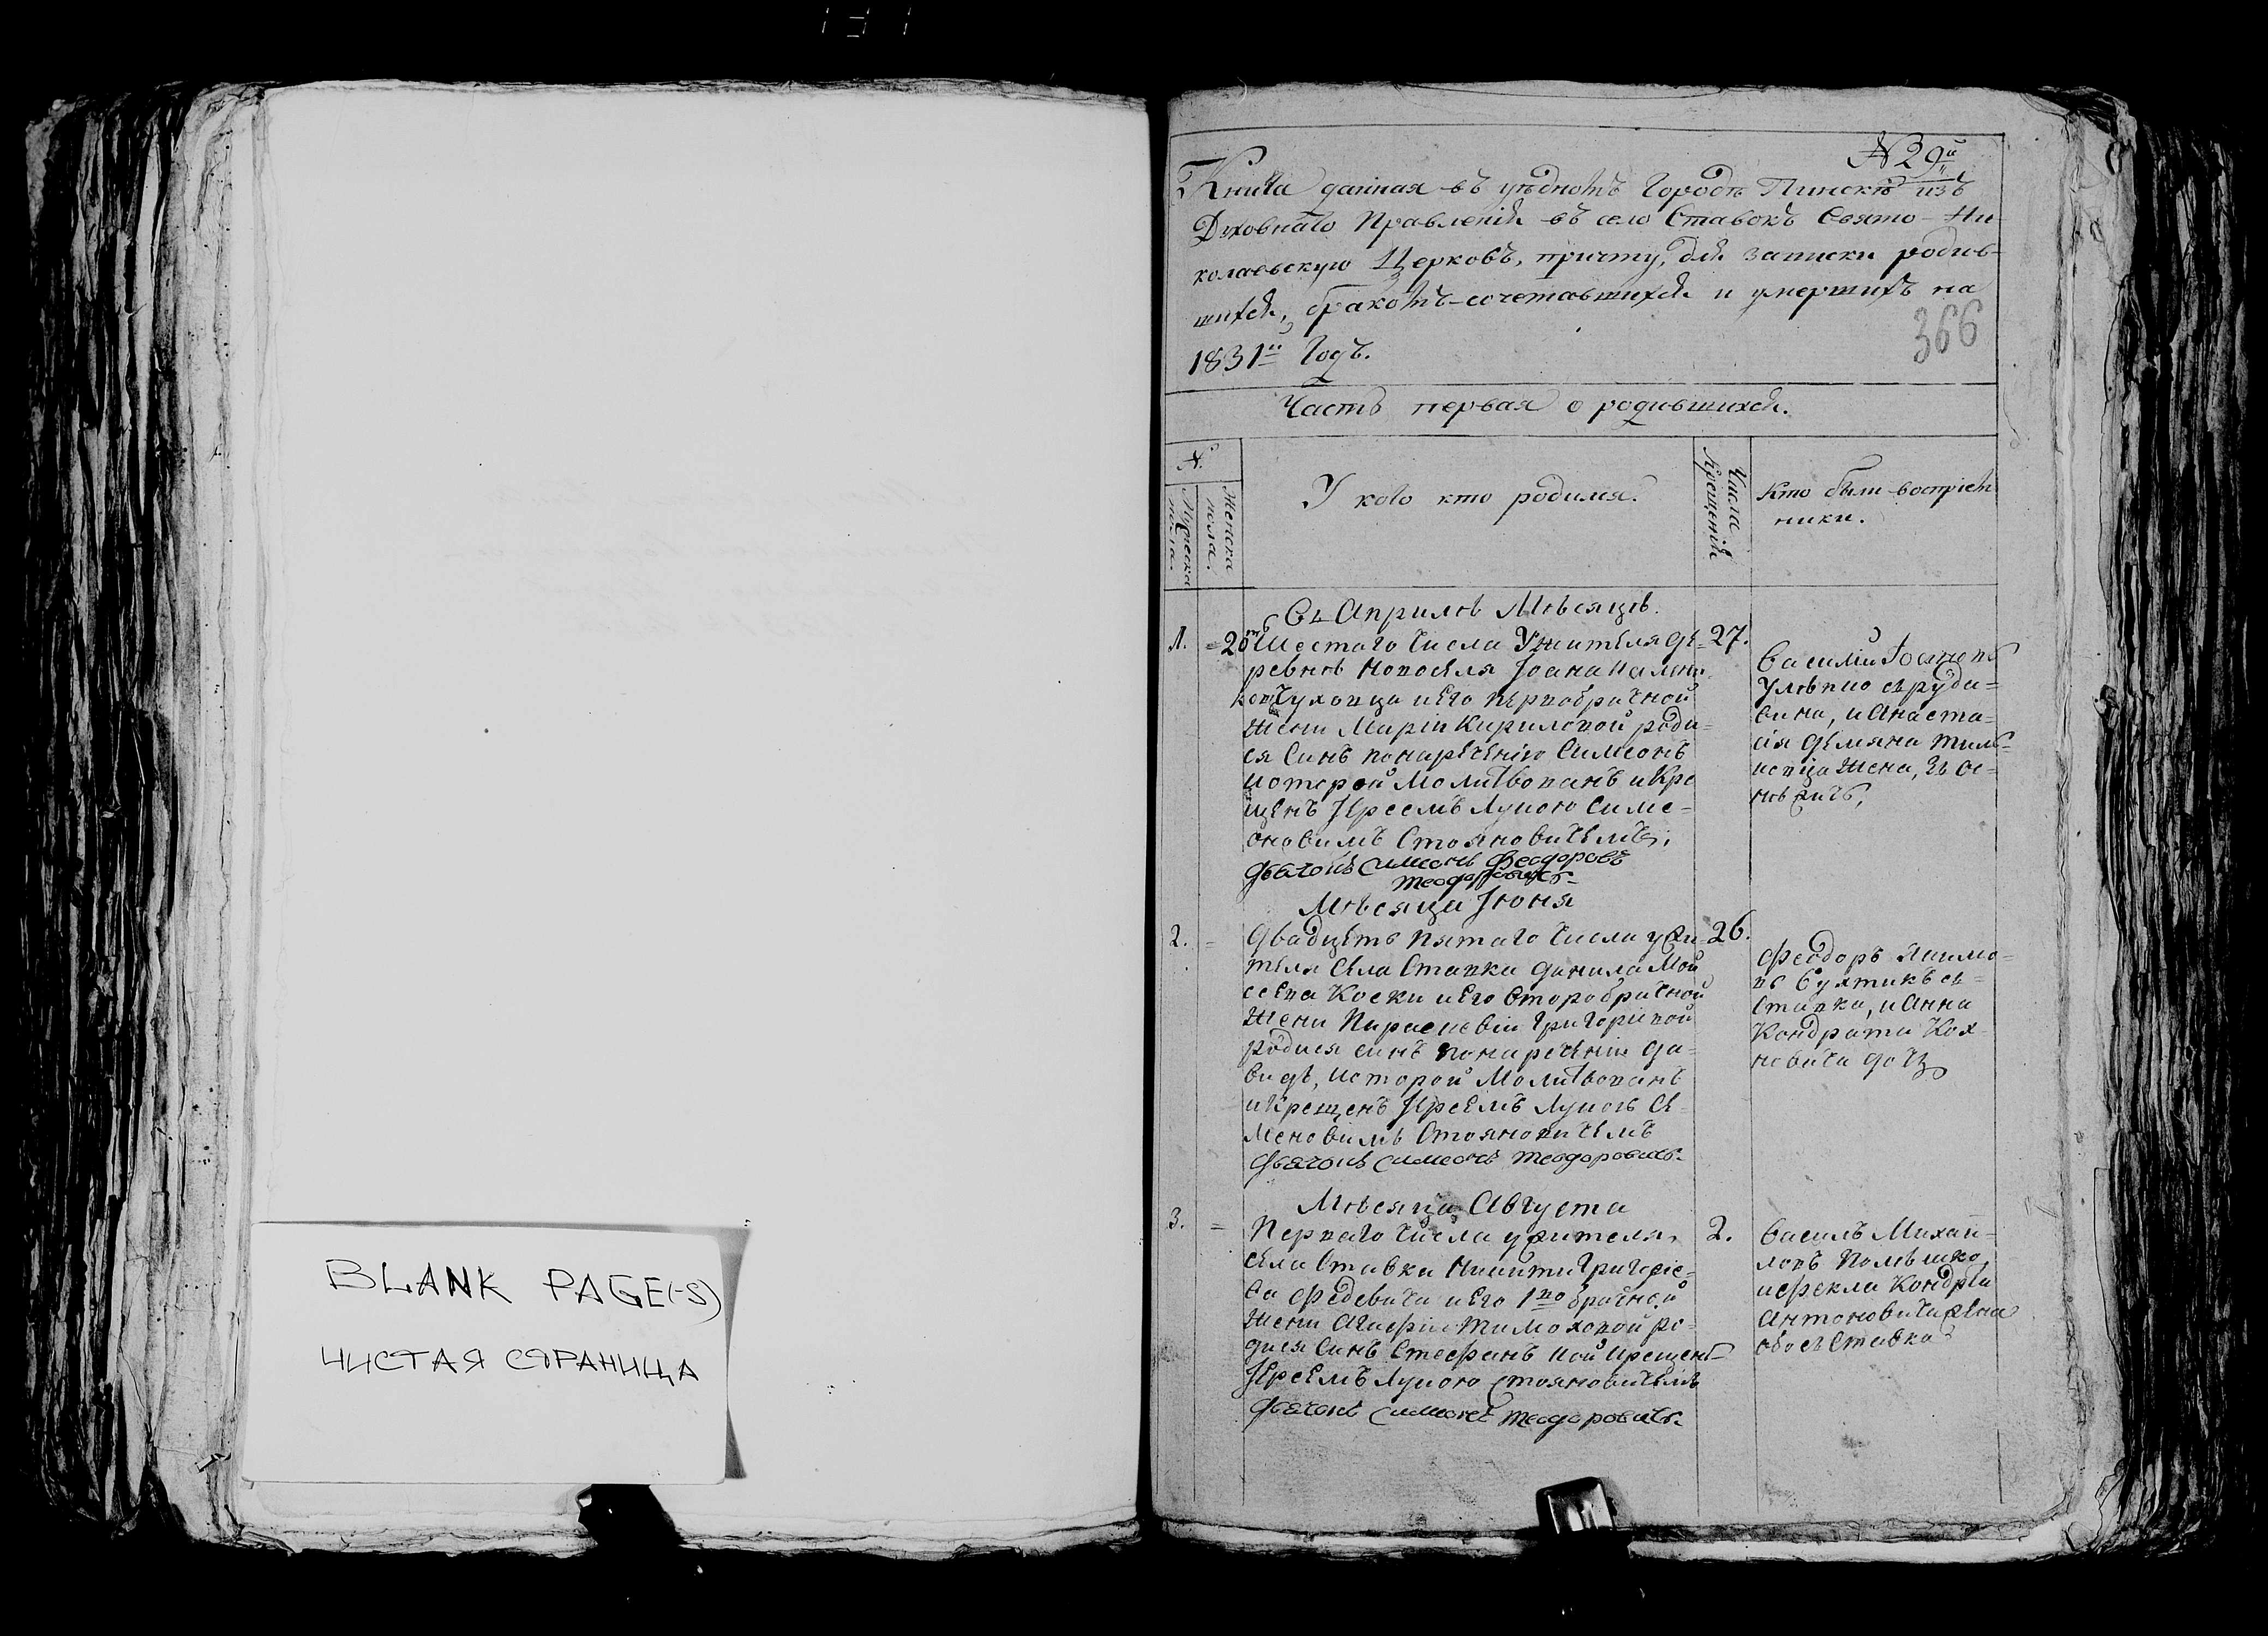 BLANK PAGE(-S)
ЧИСТАЯ СТРАНИЦА
N 29й
Книга данная въ уѣдномъ Городѣ Пинскѣ изъ
Духовнаго Правленія въ село Ставокъ Свято-Ни-
колаевскую Церковь, причту, для записки родив-
шихся, бракомъ-сочетавшихся и умершихъ на
1831й Годъ.
366
Часть первая о родившихся.
N.
Мужеска пола.
Женска пола.
У кого кто родился.
Числа Крещенія
Кто были воспріем
ники.
Въ Априлѣ Мѣсяцѣ.
1. = 20ть Шестаго Числа Ужителя де= 27.
ревнѣ Новоселя Іоана
и Его первобрачной
жени Маріи Кириловой роди=
ся Синъ понареченію Симеонъ
которой Молитвованъ и Кре
щенъ Іереемъ Лукою Симе=
оновимъ Стояновичемъ,
Дьячокъ Симеонъ Феодоровъ
Теодоровичъ
Василій
и Анаста=
сія Демяна
жена,
Мѣсяца Іюня
2. = Двадцеть пятаго Числа ужи= 26.
теля Села Ставка Данила Мой
сеева Коски и Его Второбрачной
жени Параскевіи Григоріевой
родися синъ понареченіи Да=
видъ, которой Молитвованъ
и Крещенъ Іереемъ Лукою Се=
меновимъ Стояновичемъ
Дьячокъ Симеонъ Теодоровичъ
Феодоръ
съ=
Ставка, и Анна
Кондрата Кох=
новича дочъ
Мѣсяца Августа
3. = Перваго Числа ужителя, 2.
села Ставка Никити Григоріе=
ва Федевича и Его 1во брачной
жени Агафіи Тимоховой ро=
дися Синъ Стефанъ кой крещенъ
Іереемъ Лукою Стояновичемъ
Дьячокъ Симеонъ Теодоровичъ
Василь Михай=
ловъ
и Фекла Кондрта
Антоновича жена
обое съ Ставка